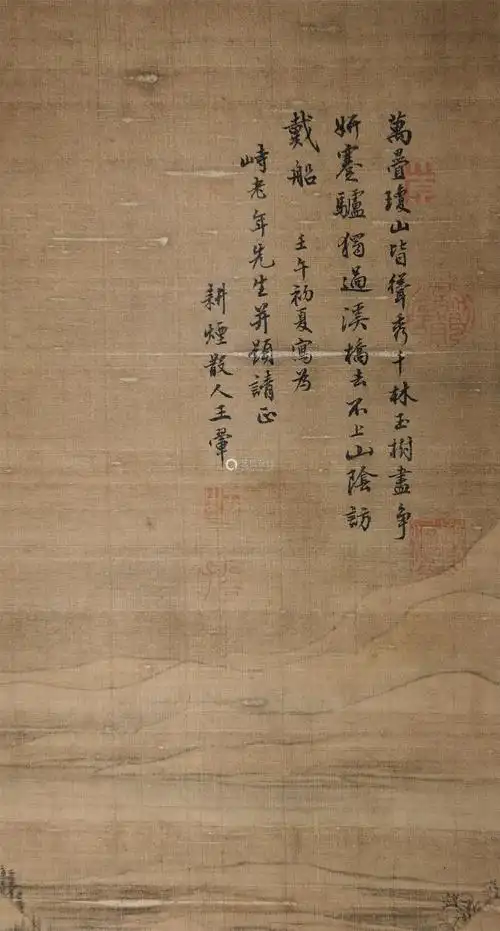 萬疊瓊山皆聳秀千林玉樹盡爭
妍蹇驢獨過溪橋去不上山陰訪
戴船 壬午初夏寫為
峙老年先生并題請正
耕煙散人王翬